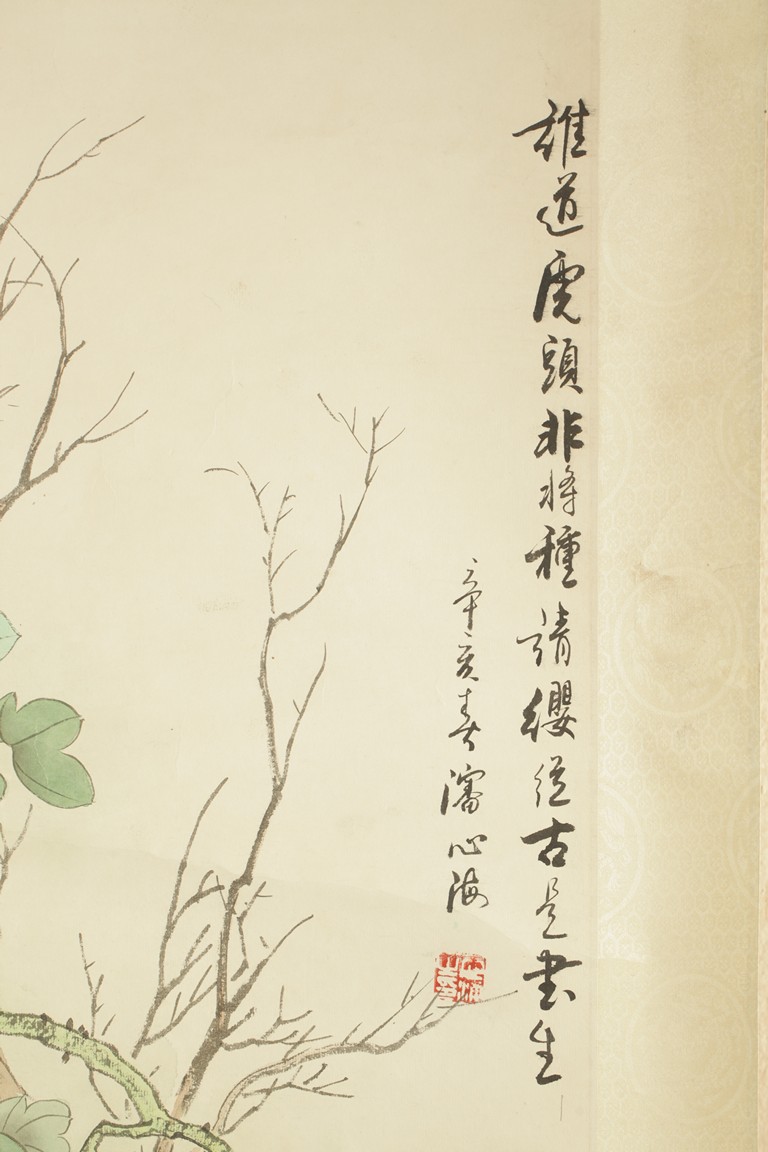 誰道虎頭非將種請纓從古是書生
辛亥春沈心海